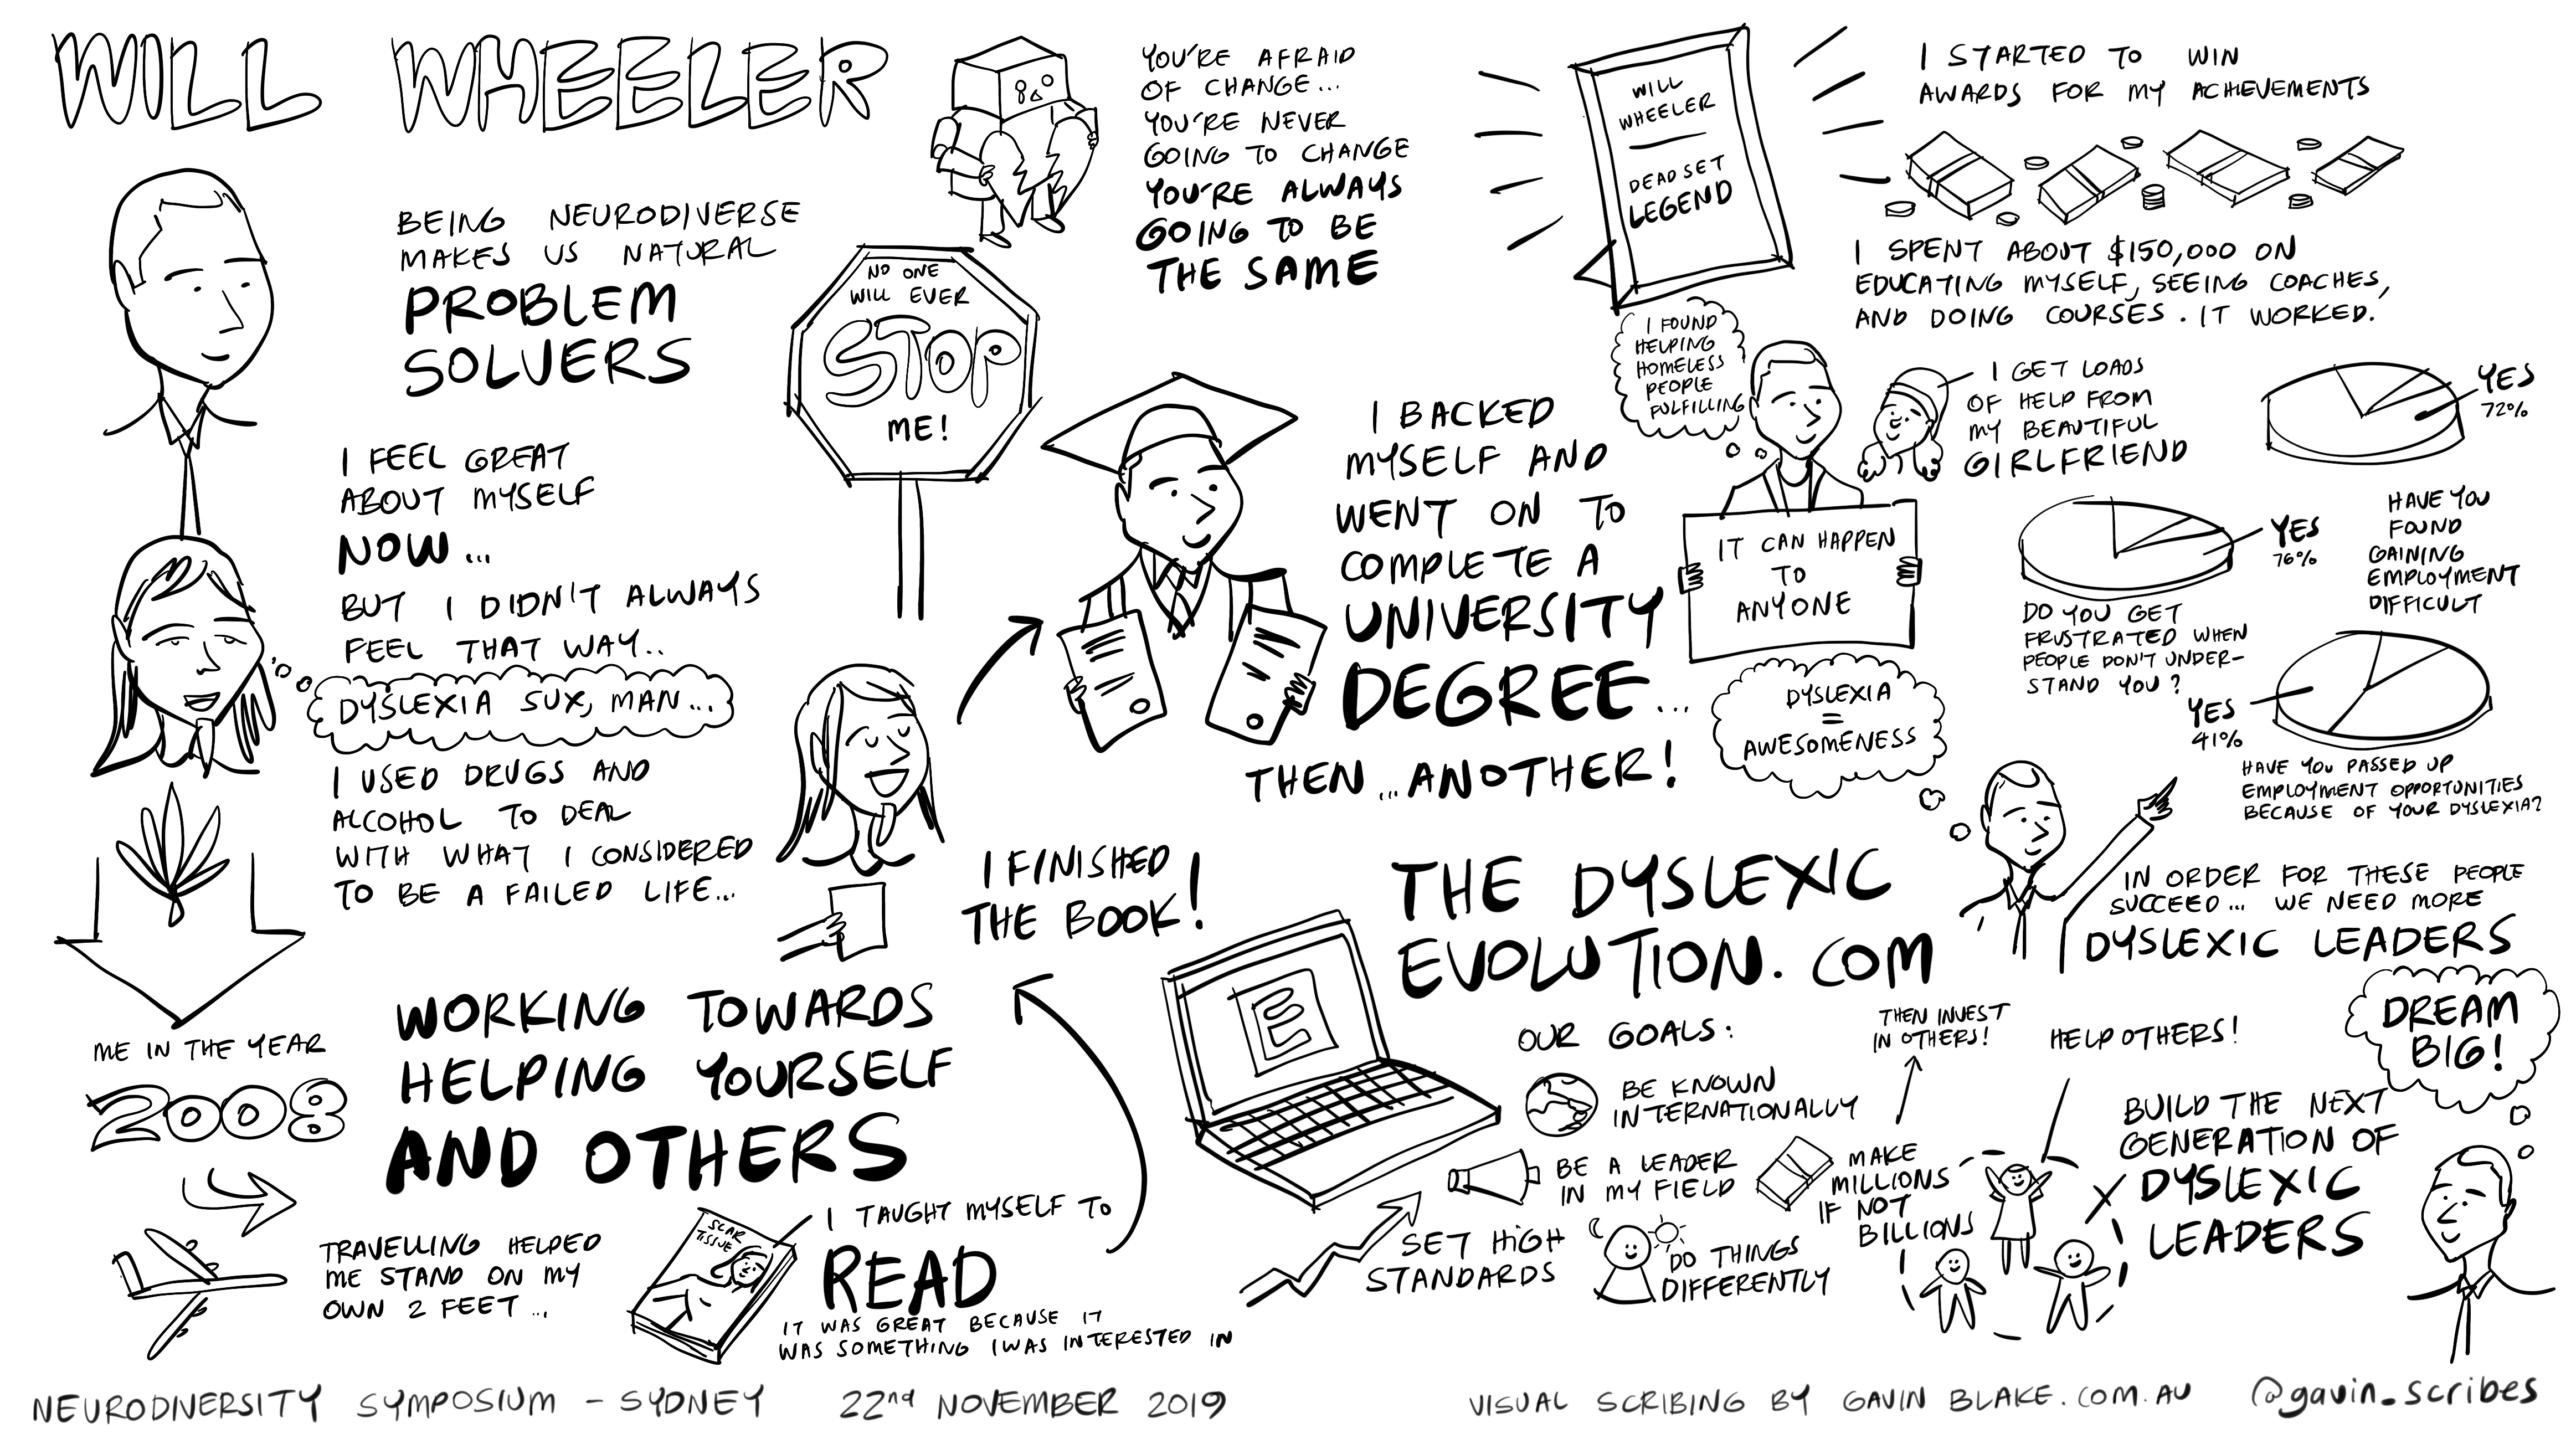 WILL WHEELER
BEING NEURODIVERSE
MAKES US NATURAL
PROBLEM
SOLVERS
I FEEL GREAT
ABOUT MYSELF
NOW...
BUT I DIDN'T ALWAYS
FEEL THAT WAY..
DYSLEXIA SUX, MAN...
I USED DRUGS AND
ALCOHOL TO DEAL
WITH WHAT I CONSIDERED
TO BE A FAILED LIFE...
ME IN THE YEAR
2008
TRAVELLING HELPED
ME STAND ON MY
OWN 2 FEET...
WORKING TOWARDS
HELPING YOURSELF
AND OTHERS
SCAR
TISSUE
I TAUGHT MYSELF TO
READ
IT WAS GREAT BECAUSE IT
WAS SOMETHING I WAS INTERESTED IN
I FINISHED
THE BOOK!
NO ONE
WILL EVER
STOP
ME!
YOU'RE AFRAID
OF CHANGE...
YOU'RE NEVER
GOING TO CHANGE
YOU'RE ALWAYS
GOING TO BE
THE SAME
I BACKED
MYSELF AND
WENT ON TO
COMPLETE A
UNIVERSITY
DEGREE...
THEN...ANOTHER!
WILL
WHEELER
DEADSET
LEGEND
I STARTED TO WIN
AWARDS FOR MY ACHIEVEMENTS
I SPENT ABOUT $150,000 ON
EDUCATING MYSELF, SEEING COACHES,
AND DOING COURSES. IT WORKED.
I FOUND
HELPING
HOMELESS
PEOPLE
FULFILLING
I GET LOADS
OF HELP FROM
MY BEAUTIFUL
GIRLFRIEND
IT CAN HAPPEN
TO
ANYONE
YES
72%
HAVE YOU
FOUND
GAINING
EMPLOYMENT
DIFFICULT
YES
76%
DO YOU GET
FRUSTRATED WHEN
PEOPLE DON'T UNDER-
STAND YOU?
YES
41%
HAVE YOU PASSED UP
EMPLOYMENT OPPORTUNITIES
BECAUSE OF YOUR DYSLEXIA?
DYSLEXIA
=
AWESOMENESS
IN ORDER FOR THESE PEOPLE
SUCCEED... WE NEED MORE
DYSLEXIC LEADERS
THE DYSLEXIC
EVOLUTION.COM
E
OUR GOALS:
BE KNOWN
INTERNATIONALLY
BE A LEADER
IN MY FIELD
SET HIGH
STANDARDS
DO THINGS
DIFFERENTLY
MAKE
MILLIONS
IF NOT
BILLIONS
THEN INVEST
IN OTHERS!
HELP OTHERS!
BUILD THE NEXT
GENERATION OF
DYSLEXIC
LEADERS
DREAM
BIG!
NEURODIVERSITY SYMPOSIUM - SYDNEY 22nd NOVEMBER 2019
VISUAL SCRIBING BY GAVIN BLAKE.COM.AU @gavin_scribes